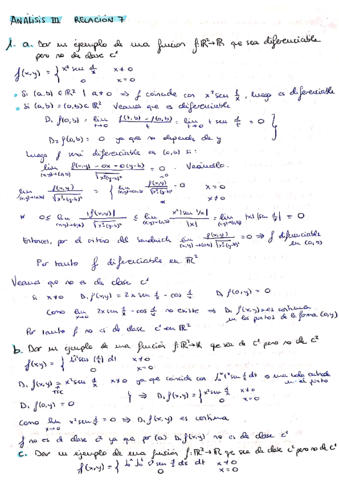 ANÁLISIS III RELACIÓN 7
1. a. Dar un ejemplo de una función f: ℝ²→ℝ que sea diferenciable
pero no de clase C¹
f(x,y) = { x² sen 1/x x≠0
0 x=0
• Si (a,b) ∈ ℝ² | a≠0 ⇒ f coincide con x² sen 1/x, luego es diferenciable
• Si (a,b) = (0,b) ∈ ℝ² Veamos que es diferenciable
D₁ f(0,b) = lim t→0 f(t,b) - f(0,b) / t = lim t→0 t sen 1/t = 0
D₂ f(0,b) = 0 ya que no depende de y
Luego f será diferenciable en (0,b) si:
lim (x,y)→(0,b) f(x,y) - 0x - 0(y-b) / √x²+(y-b)² = 0 . Veámoslo.
lim (x,y)→(0,b) f(x,y) / √x²+(y-b)² = { 0 x=0
x≠0
* 0 ≤ lim |f(x,y)| / √x²+(y-b)² ≤ lim x² |sen 1/x| / |x| = lim |x| |sen 1/x| = 0
Entonces, por el criterio del sandwich lim f(x,y) / √x²+(y-b)² = 0 ⇒ f diferenciable
en (0,b)
Por tanto f diferenciable en ℝ²
Veamos que no es de clase C¹
Si x≠0 D₁ f(x,y) = 2x sen 1/x - cos 1/x D₁ f(0,y) = 0
Como lim x→0 2x sen 1/x - cos 1/x no existe ⇒ D₁ f(x,y) no es continua
en los puntos de la forma (0,y)
Por tanto f no es de clase C¹ en ℝ²
b. Dar un ejemplo de una función f: ℝ²→ℝ que sea de C¹ pero no de C²
f(x,y) = { x≠0
0 x=0
D₁ f(x,y) = x² sen 1/x x≠0 ya que coincide con
D₁ f(0,y) = 0 ⇒ D₁ f(x,y) = { x² sen 1/x x≠0
0 x=0
Como lim x→0 x² sen 1/x = 0 ⇒ D₁ f(x,y) es continua
f no es de clase C² ya que por (a) D₁ f(x,y) no es de clase C¹
c. Dar un ejemplo de una función f: ℝ²→ℝ que sea de clase C² pero no de C³
f(x,y) = { x≠0
0 x=0